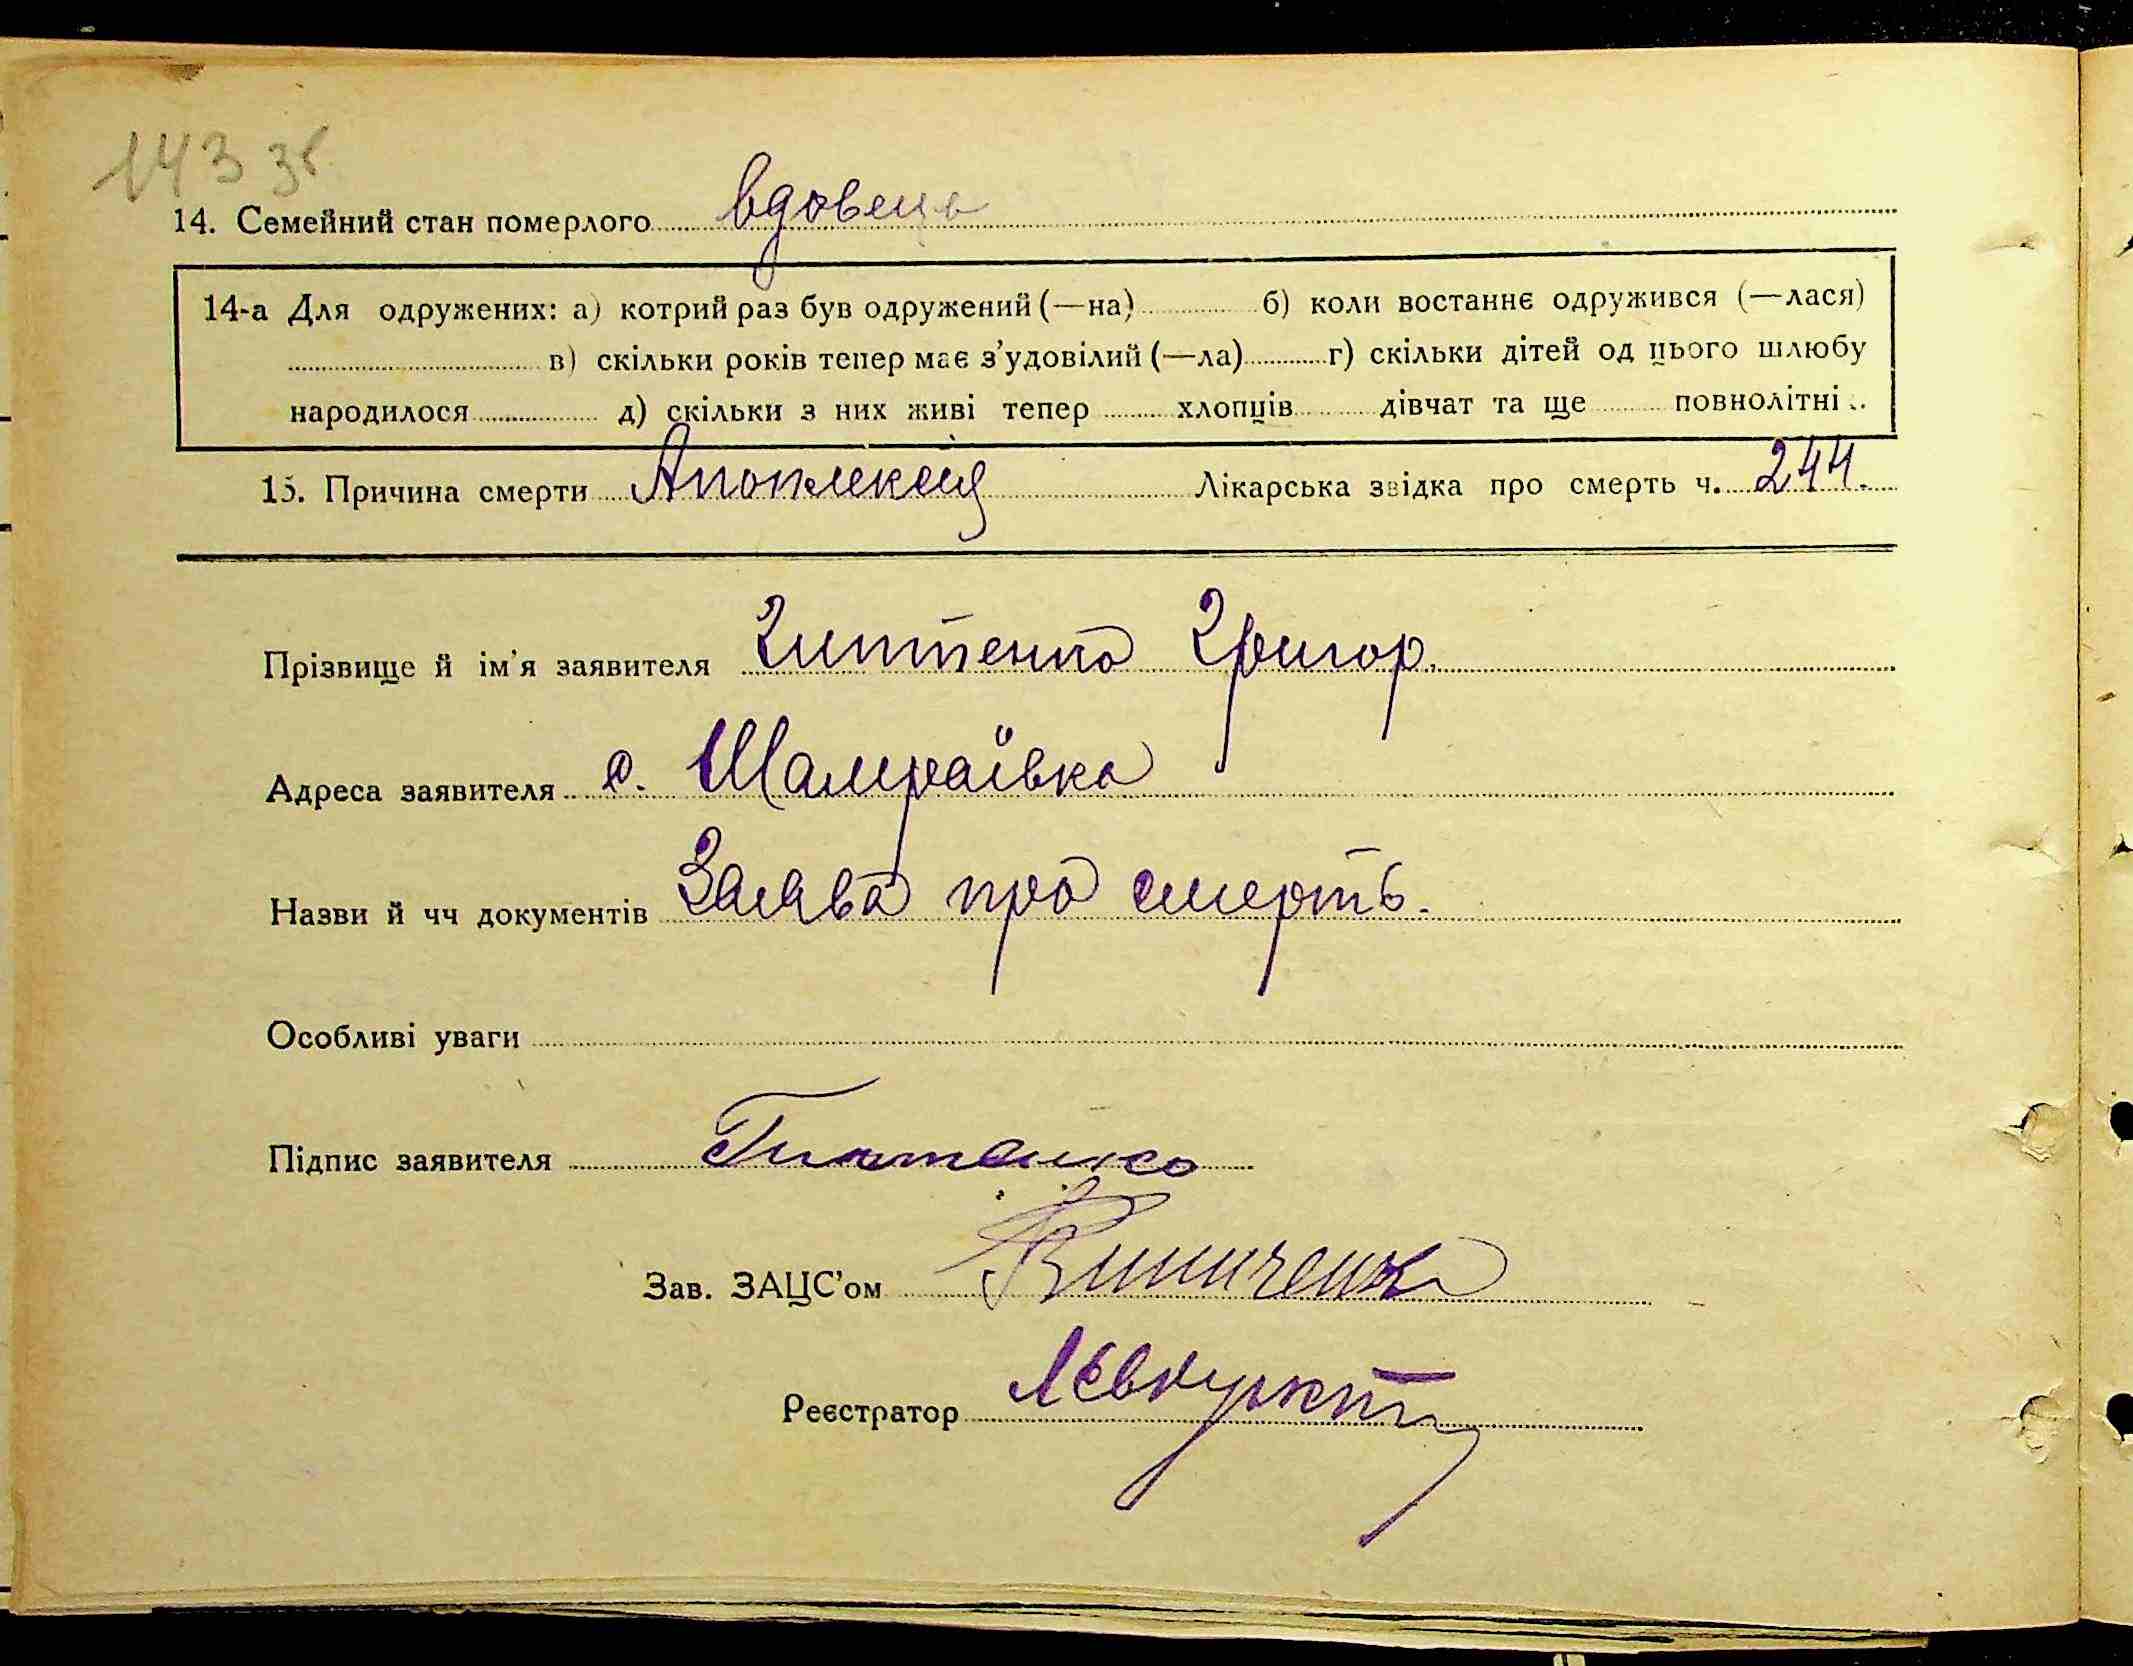 143 зв
14. Семейний стан померлого вдовець
14-а Для одружених: а) котрий раз був одружений (—на) б) коли востаннє одружився (—лася)
в) скільки років тепер має з’удовілий (—ла) г) скільки дітей од цього шлюбу
народилося д) скільки з них живі тепер хлопців дівчат та ще повнолітні
15. Причина смерти Апоплексія Лікарська звідка про смерть ч. 244.
Прізвище й ім’я заявителя Григор.
Адреса заявителя с. Шамраївка
Назви й чч документів Заява про смерть.
Особливі уваги
Підпис заявителя
Зав. ЗАЦС’ом Винниченко
Реєстратор